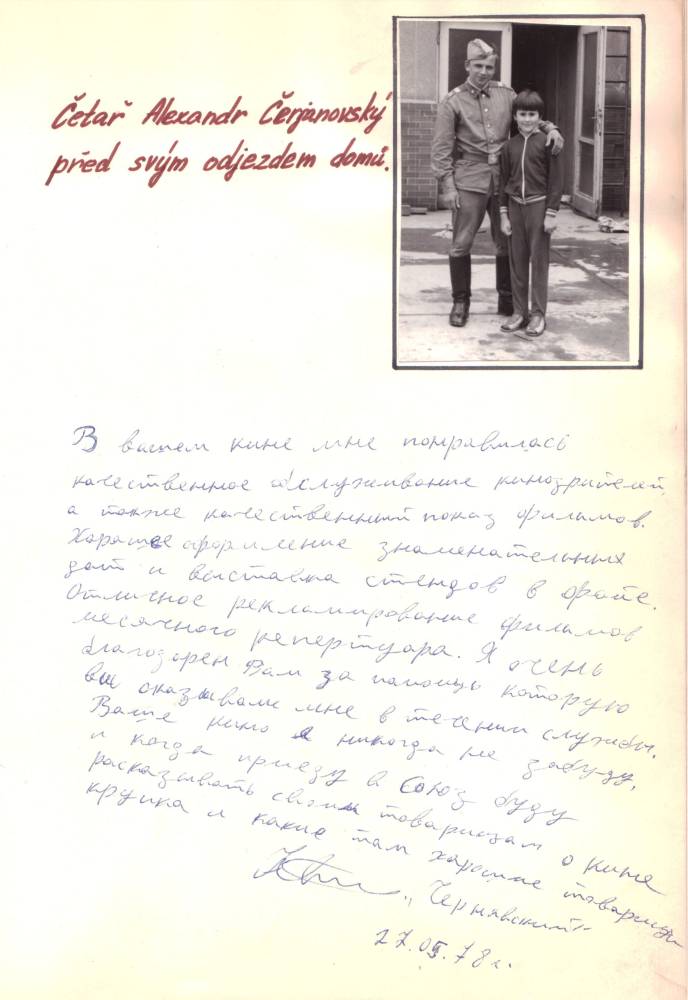 Četař Alexandr Čerjanovský
před svým odjezdem domů.
В вашем кине мне понравилась
качественное обслуживание кинозрителей,
а также качественный показ фильмов.
Хорошее оформление знаменательных
дат и выставка стендов в фойе.
Отличное рекламирование фильмов
месячного репертуара. Я очень
благодарен Вам за помощь которую
вы оказывали мне в течении службы.
Ваше кино я никогда не забуду,
и когда приеду в Союз буду
расказывать своим товарищам о кине
и какие там хорошие товарищи
Чернявский
27.05.78г.